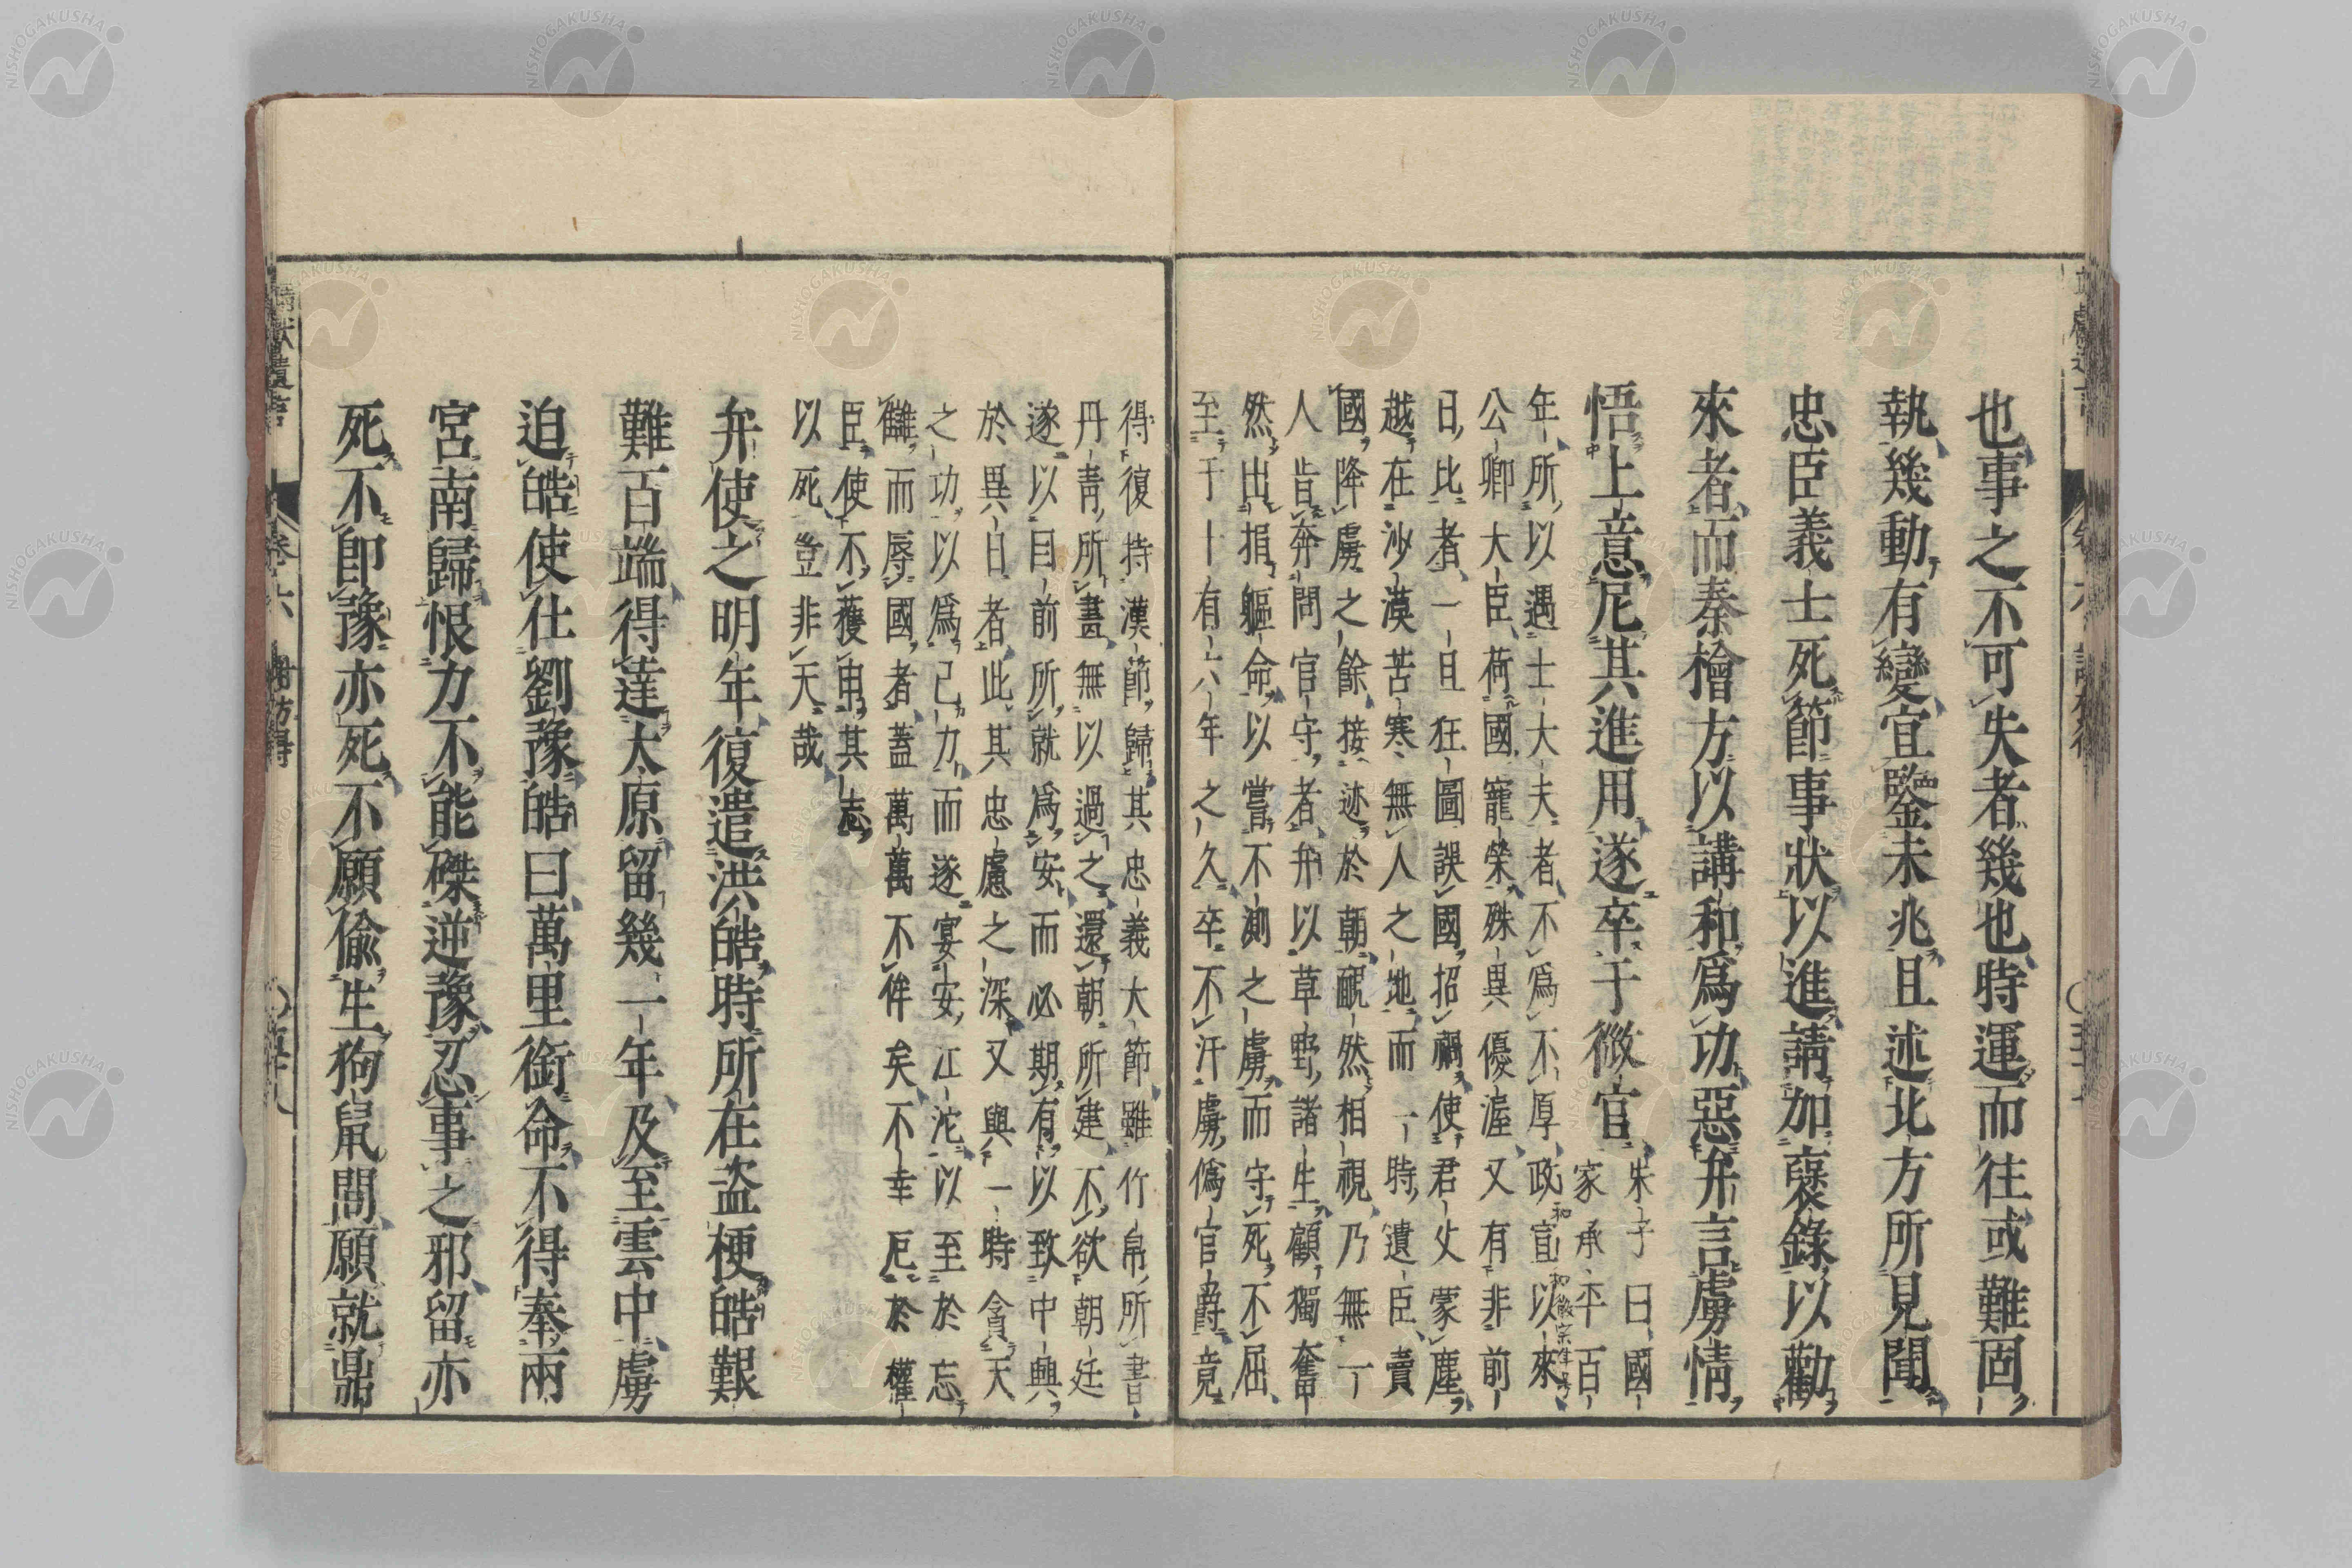 也事之不可失者幾也時運而往或難固
執幾動有變宜鑒未兆且述北方所見聞
忠臣義士死節事狀以進請加襃錄以勸
來者而秦檜方以講和爲功惡弁言虜情
悟上意尼其進用遂卒于微官
朱子曰國
家承平百
年所以遇士大夫者不爲不厚政宣以來
公卿大臣荷國寵榮殊異優渥又有非前
日比者一旦狂圖誤國招禍使君父蒙塵
越在沙漠苦寒無人之地而一時遺臣賣
國降虜之餘接迹於朝覥然相視乃無一
人肯奔問官守者弁以草野諸生顧獨奮
然出捐軀命以嘗不測之虜而守死不屈
至于十有六年之久卒不汙虜僞官爵竟
得復持漢節歸其忠義大節雖竹帛所書
丹靑所畫無以過之還朝所建不欲朝廷
遂以目前所就爲安而必期有以致中興
於異日者此其忠慮之深又與一時貪天
之功以爲己力而遂宴安江沱以至於忘
讎而辱國者蓋萬萬不侔矣不幸厄於權
臣使不獲申其志
以死豈非天哉
弁使之明年復遣洪皓時所在盜梗皓艱
難百端得達太原留幾一年及至雲中虜
迫皓使仕劉豫皓曰萬里銜命不得奉兩
宮南歸恨力不能磔逆豫忍事之邪留亦
死不卽豫亦死不願偸生狗鼠閒願就鼎
卷六
謝枋得
NISHOGAKUSHA